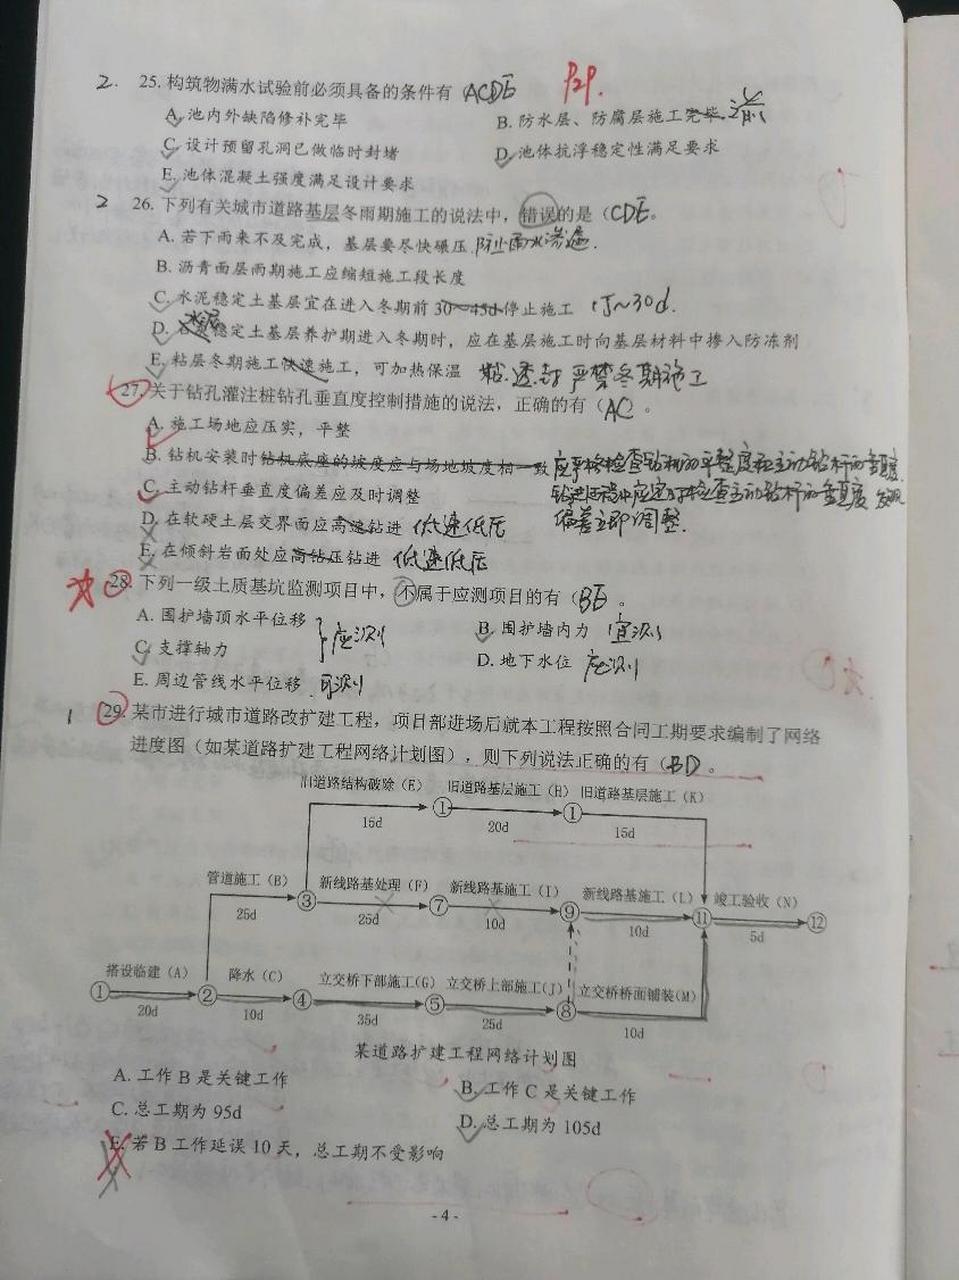 2. 25. 构筑物满水试验前必须具备的条件有 ACDE P29.
A. 池内外缺陷修补完毕 B. 防水层、防腐层施工完毕 之前
C. 设计预留孔洞已做临时封堵 D. 池体抗浮稳定性满足要求
E. 池体混凝土强度满足设计要求
2 26. 下列有关城市道路基层冬雨期施工的说法中，错误的是（CDE。
A. 若下雨来不及完成，基层要尽快碾压 防止雨水渗透.
B. 沥青面层雨期施工应缩短施工段长度
C. 水泥稳定土基层宜在进入冬期前 30～45d 停止施工 15~30d.
D. 石灰稳定土基层养护期进入冬期时，应在基层施工时向基层材料中掺入防冻剂
水泥
E. 粘层冬期施工快速施工，可加热保温 粘.透.封 严禁冬期施工
27. 关于钻孔灌注桩钻孔垂直度控制措施的说法，正确的有（AC 。
A. 施工场地应压实，平整
B. 钻机安装时钻机底座的坡度应与场地坡度相一致 应严格检查钻机的平整度和主动钻杆的垂直度.
钻进过程中应定时检查主动钻杆的垂直度 发现
C. 主动钻杆垂直度偏差应及时调整 偏差立即调整.
D. 在软硬土层交界面应高速钻进 低速低压
E. 在倾斜岩面处应高钻压钻进 低速低压
28. 下列一级土质基坑监测项目中，不属于应测项目的有（BE 。
A. 围护墙顶水平位移 B. 围护墙内力 宜测
应测
C. 支撑轴力 D. 地下水位 应测
E. 周边管线水平位移 可测
1 29. 某市进行城市道路改扩建工程，项目部进场后就本工程按照合同工期要求编制了网络
进度图（如某道路扩建工程网络计划图），则下列说法正确的有（BD 。
旧道路结构破除（E） 旧道路基层施工（H） 旧道路基层施工（K）
① ①
15d 20d 15d
管道施工（B） 新线路基处理（F） 新线路基施工（I） 新线路基施工（L） 竣工验收（N）
③ ⑦ ⑨ ⑪ ⑫
25d 25d 10d 10d 5d
搭设临建（A） 降水（C） 立交桥下部施工(G) 立交桥上部施工(J) 立交桥桥面铺装(M)
① ② ④ ⑤ ⑧
20d 10d 35d 25d 10d
某道路扩建工程网络计划图
A. 工作 B 是关键工作 B. 工作 C 是关键工作
C. 总工期为 95d D. 总工期为 105d
E. 若 B 工作延误 10 天，总工期不受影响
- 4 -